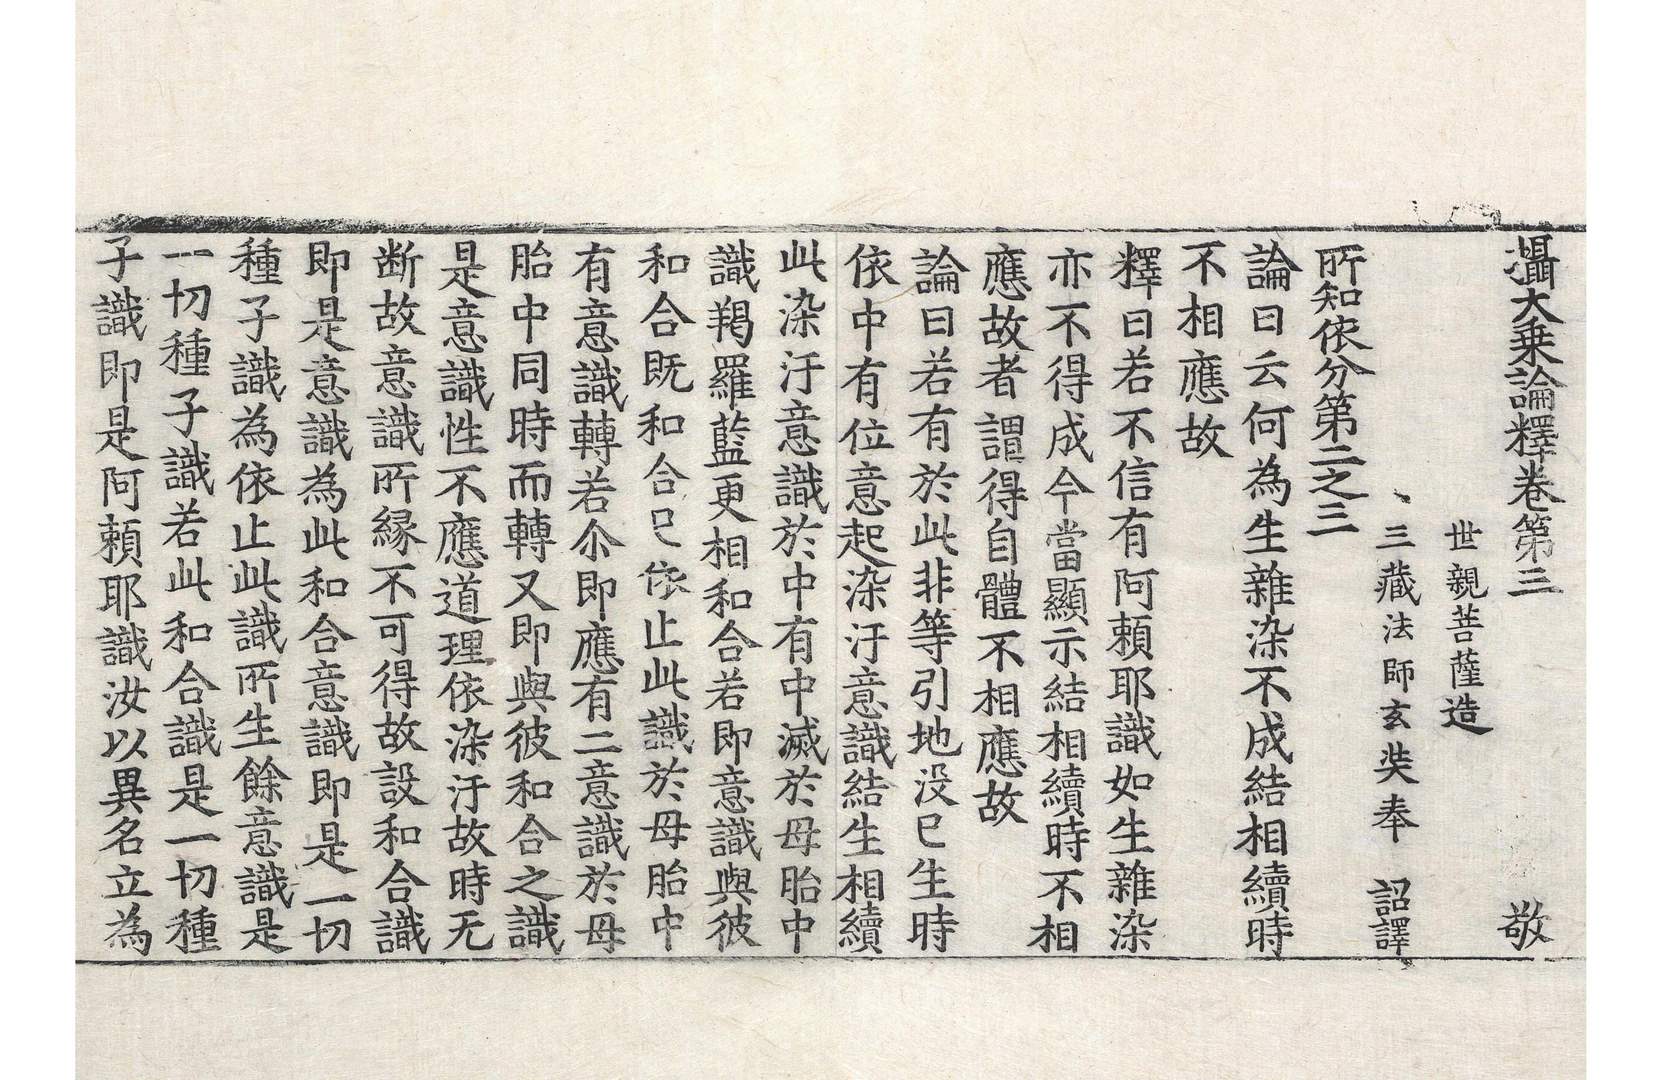 攝大乗論釋卷第三 敬
世親菩薩造
三藏法師玄奘奉 詔譯
所知依分第二之三
論曰云何為生雜染不成結相續時
不相應故
釋曰若不信有阿頼耶識如生雜染
亦不得成今當顯示結相續時不相
應故者謂得自體不相應故
論曰若有於此非等引地没已生時
依中有位意起染汙意識結生相續
此染汙意識於中有中滅於母胎中
識羯羅藍更相和合若即意識與彼
和合既和合已依止此識於母胎中
有意識轉若尒即應有二意識於母
胎中同時而轉又即與彼和合之識
是意識性不應道理依染汙故時无
断故意識所縁不可得故設和合識
即是意識為此和合意識即是一切
種子識為依止此識所生餘意識是
一切種子識若此和合識是一切種
子識即是阿頼耶識汝以異名立為